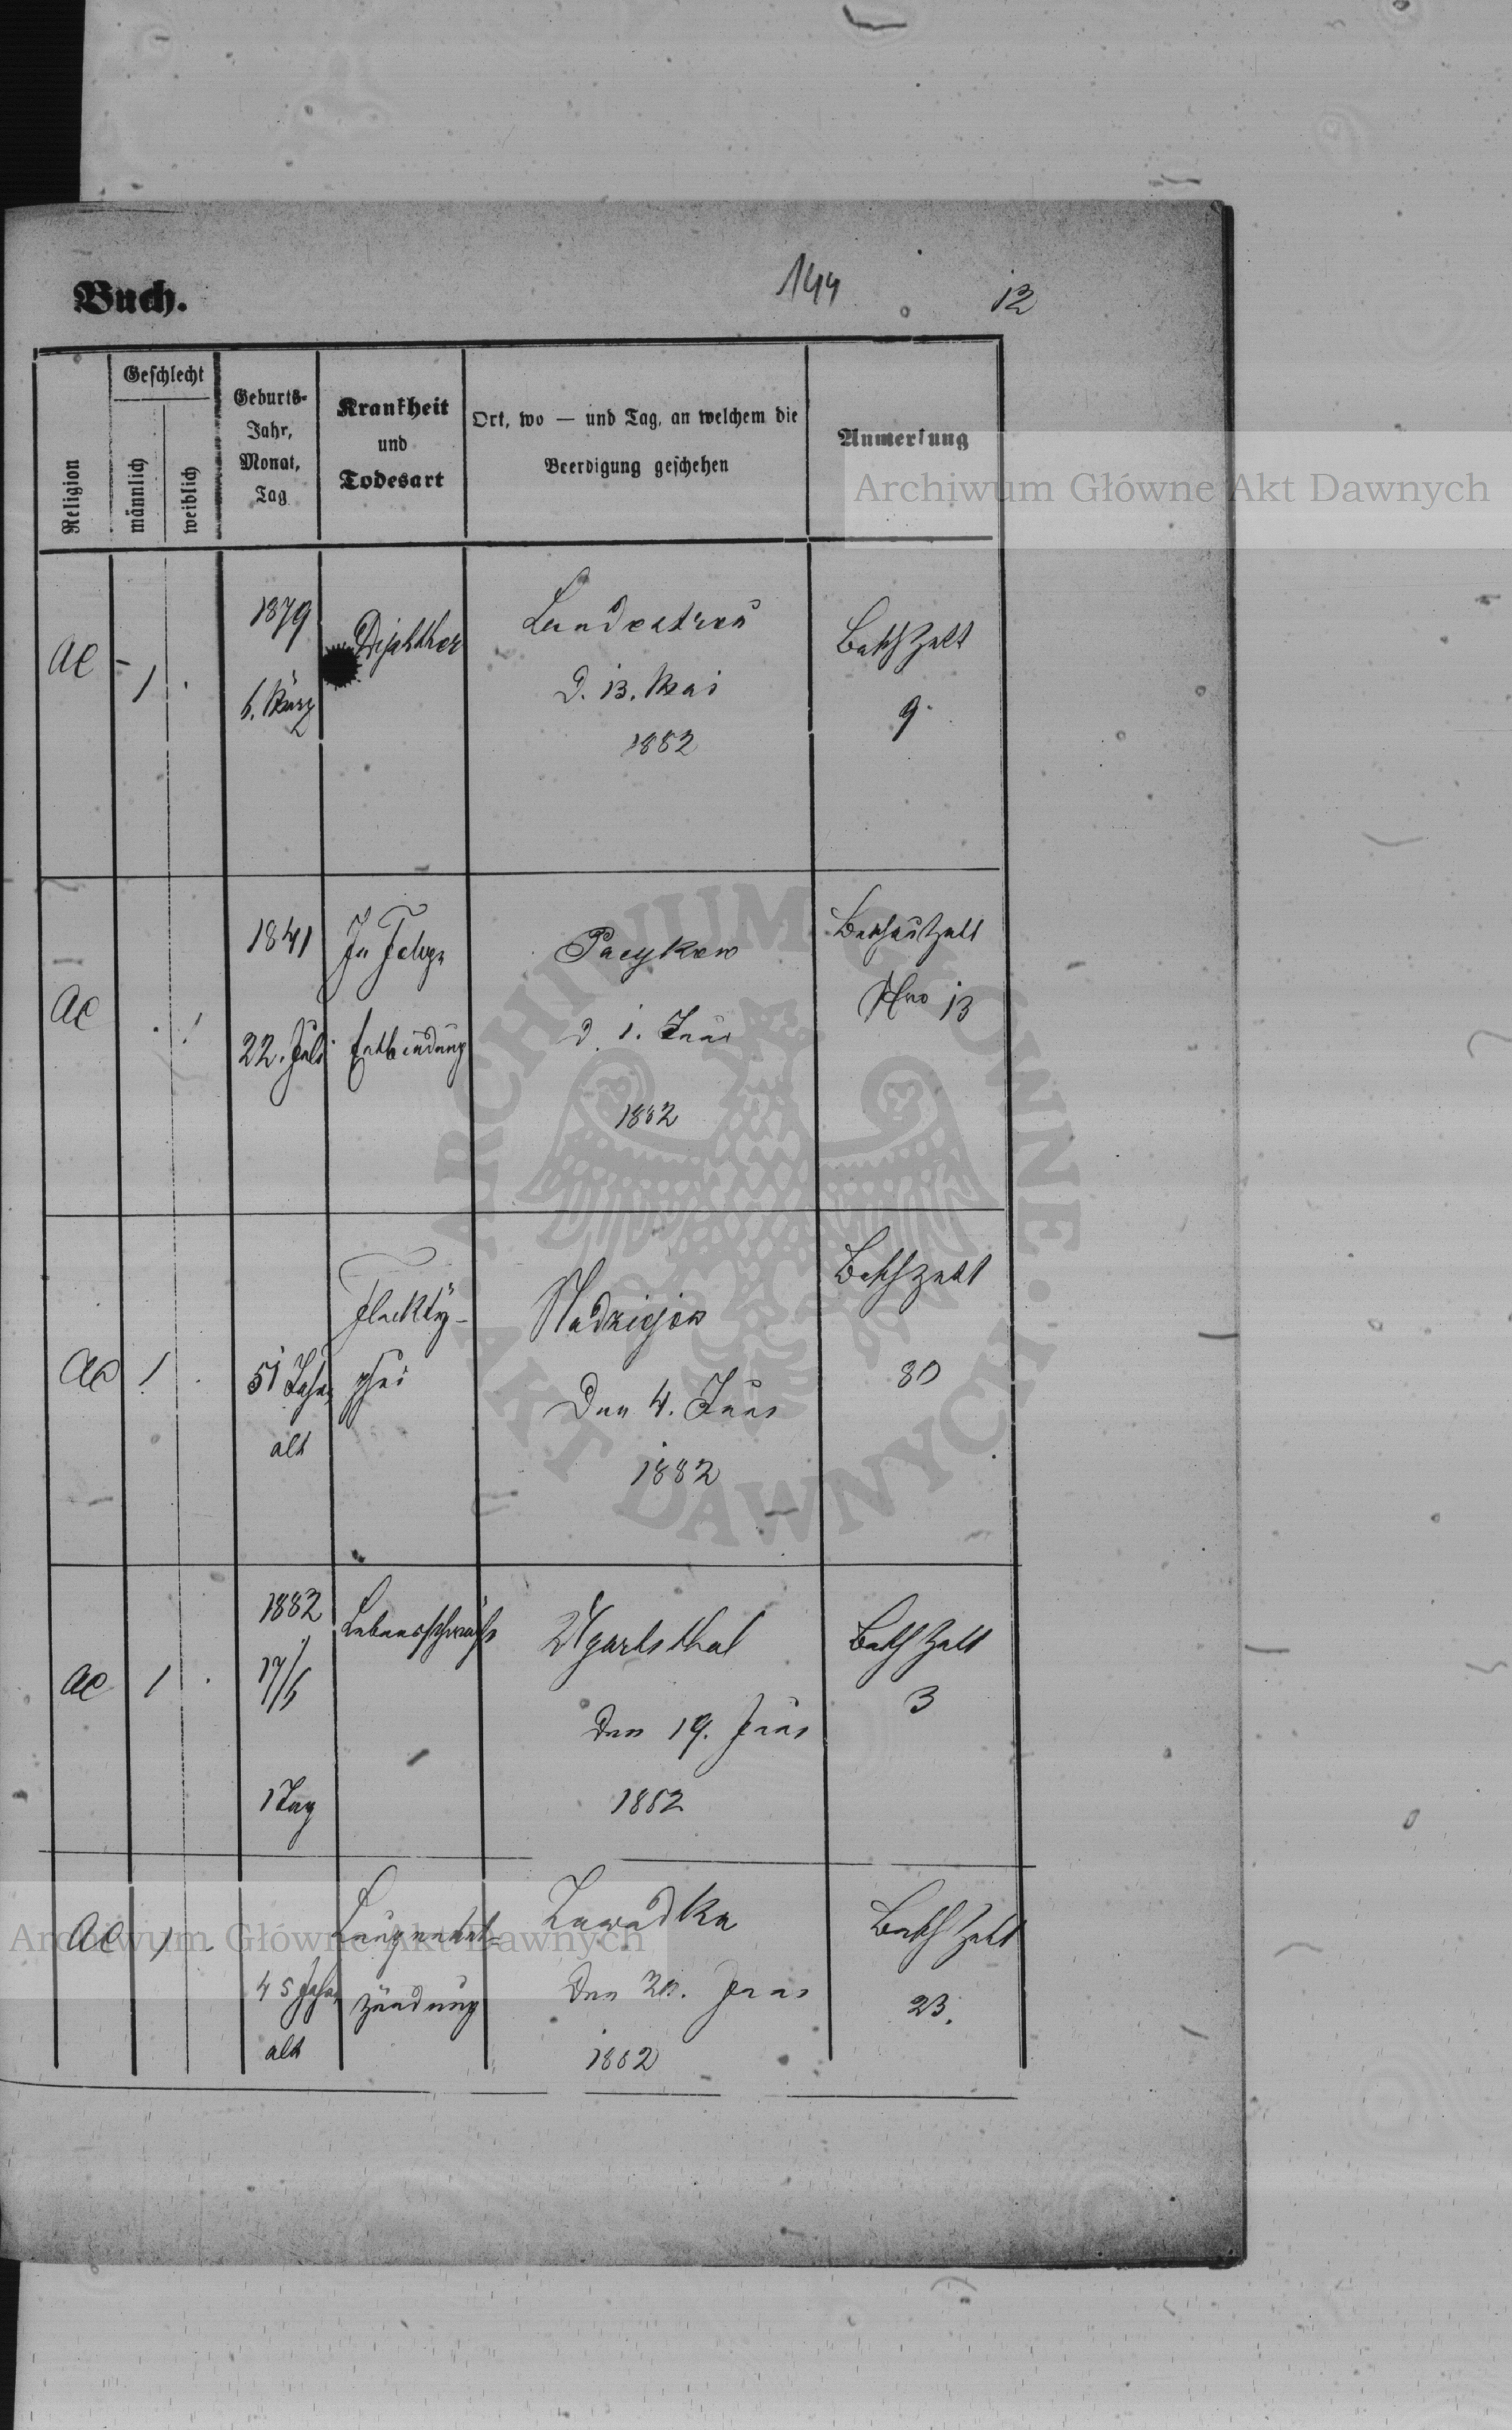 Buch.
144
12
Religion
Geschlecht
männlich
weiblich
Geburts-
Jahr,
Monat,
Tag
Krankheit
und
Todesart
Ort, wo — und Tag, an welchem die
Beerdigung geschehen
Anmerkung
Archiwum Główne Akt Dawnych
AC
1
1879
6. März
Landestreu
d. 13. Mai
1882
9.
AC
1
1841
22. Juli
In Folge
Entbindung
Pacykow
d. 1. Juni
1882
Nro 13
AC
1
51 Jahre
alt
Flekty-
phus
Nadziejow
Den 4. Juni
1882
80
AC
1
1882
17/6
1 Tag
Lebensschwäche
Ugartsthal
den 19. Juni
1882
3
AC
1
45 Jahre
alt
Lungenent=
zündung
Zawadka
den 20. Juni
1882
23.
ARCHIWUM GŁÓWNE AKT DAWNYCH
Archiwum Główne Akt Dawnych